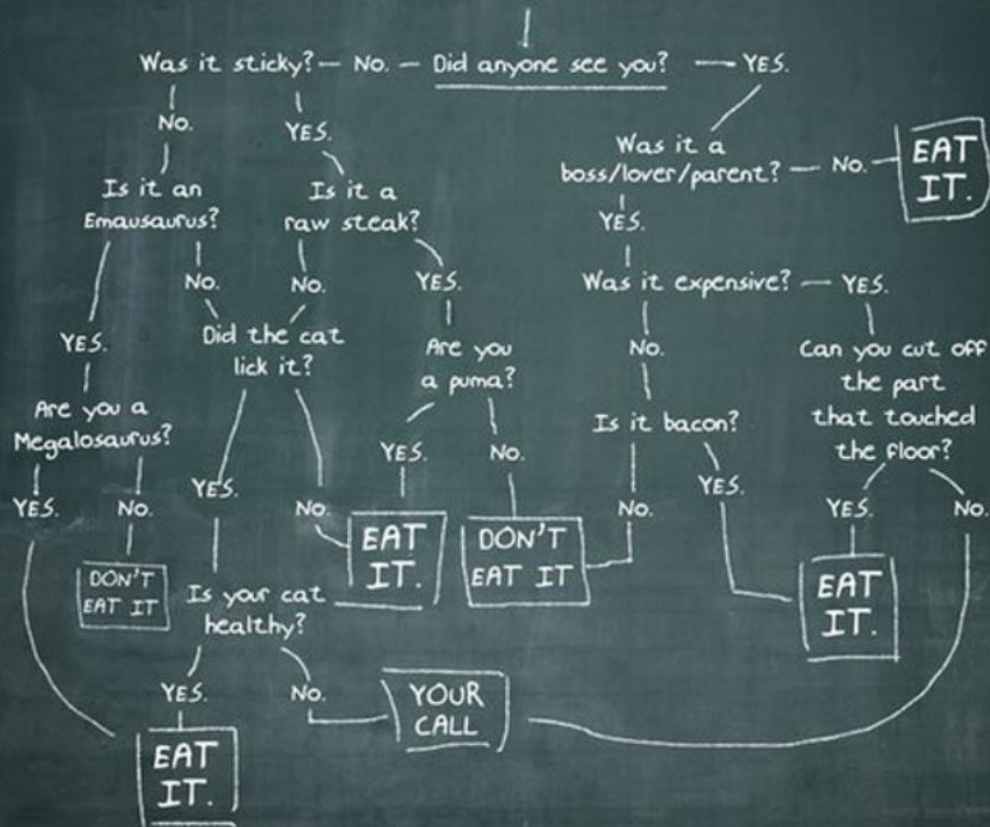 Was it sticky? — No. — Did anyone see you? — YES.
No.
YES.
Was it a
boss/lover/parent? — No.
EAT
IT.
Is it an
Emausaurus?
Is it a
raw steak?
YES.
No.
No.
YES.
Was it expensive? — YES.
YES.
Did the cat
lick it?
Are you
a puma?
No.
Can you cut off
the part
that touched
the floor?
Are you a
Megalosaurus?
Is it bacon?
YES.
No.
YES.
No.
YES.
No.
YES.
No.
YES.
No.
DON'T
EAT IT
EAT
IT.
DON'T
EAT IT
EAT
IT.
Is your cat
healthy?
YES.
No.
YOUR
CALL
EAT
IT.